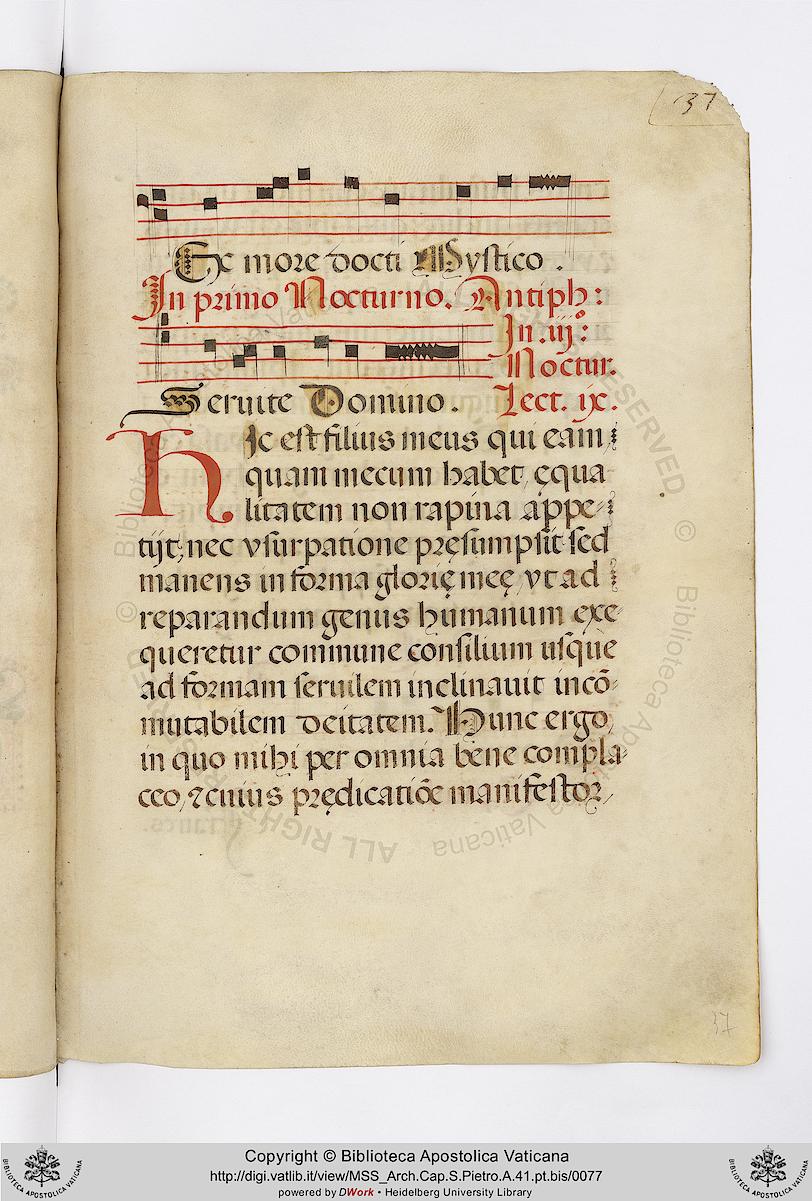 37
Ex more docti Mystico .
In primo Nocturno. Antiph:
In .iij°:
Noctur.
Seruite Domino. Lect. ix.
Hic est filius meus qui eam
quam mecum habet, ęqua
litatem non rapina appe-
tijt; nec vsurpatione pręsumpsit sed
manens in forma glorię meę, vt ad
reparandum genus humanum exe
queretur commune consilium usque
ad formam seruilem inclinauit incō-
mutabilem deitatem. Hunc ergo,
in quo mihi per omnia bene compla-
ceo, ⁊ cuius prędicatiōe manifestor,
37
© Biblioteca Apostolica Vaticana ALL RIGHTS RESERVED
Copyright © Biblioteca Apostolica Vaticana
http://digi.vatlib.it/view/MSS_Arch.Cap.S.Pietro.A.41.pt.bis/0077
powered by DWork • Heidelberg University Library
BIBLIOTECA APOSTOLICA VATICANA
BIBLIOTECA APOSTOLICA VATICANA